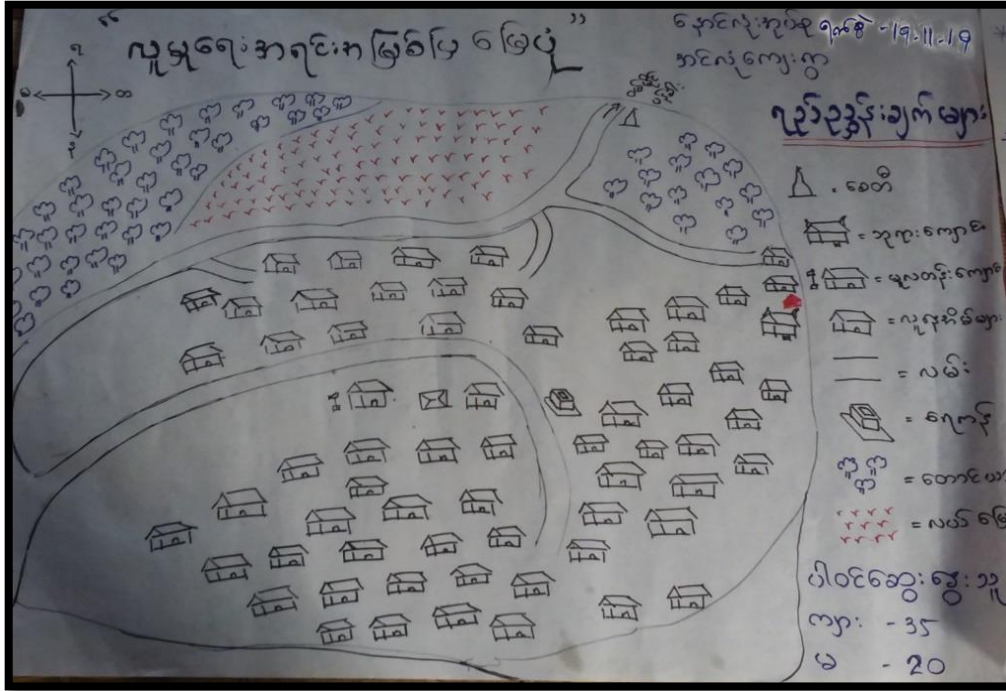 "လူမှုရေးအရင်းအမြစ်ပြ မြေပုံ"
နောင်လုံးအုပ်စု ရက်စွဲ -19.11.19
အင်လုံကျေးရွာ
ရည်ညွှန်းချက်များ
= စေတီ
= ဘုရားကျောင်း
= မူလတန်းကျောင်း
= လူနေအိမ်များ
= လမ်း
= ရေကန်
= တောင်ယာ
= လယ်မြေ
ပါဝင်ဆွေးနွေးသူ
ကျား - 35
မ - 20